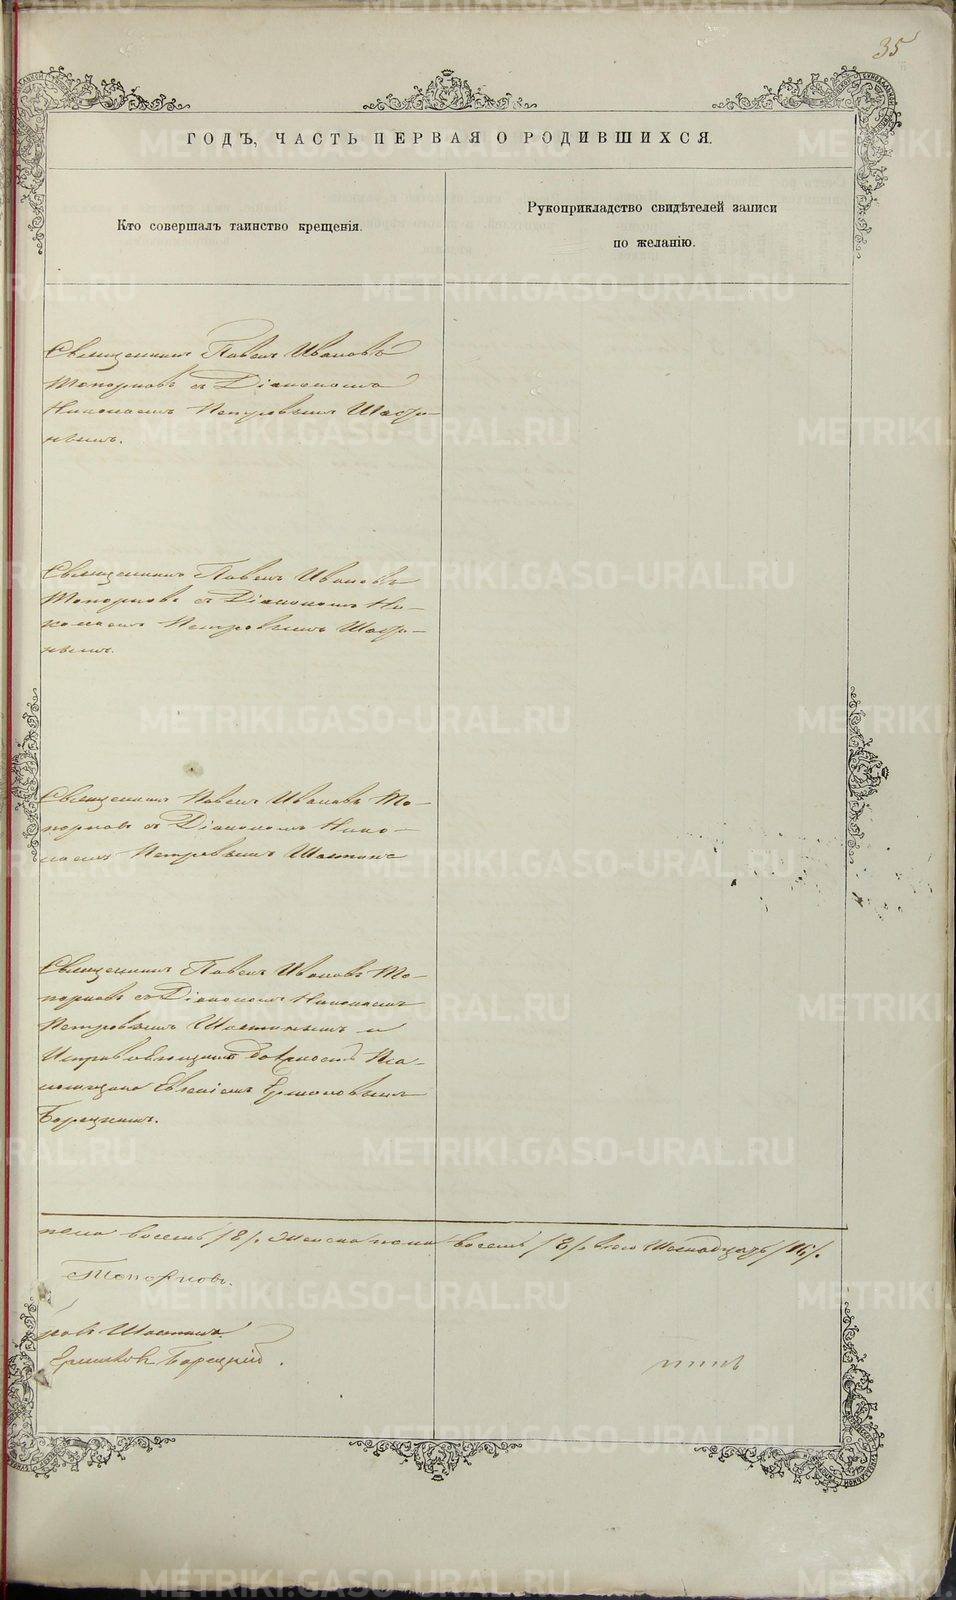 35
ГОДЪ, ЧАСТЬ ПЕРВАЯ О РОДИВШИХСЯ.
Кто совершалъ таинство крещенія.
Рукоприкладство свидѣтелей записи
по желанію.
Священникъ Павелъ Ивановъ
Топорковъ съ Діакономъ
Николаемъ Петровымъ
Священникъ Павелъ Ивановъ
Топорковъ съ Діакономъ Ни-
колаемъ Петровымъ
Священникъ Павелъ Ивановъ То-
порковъ съ Діакономъ Нико-
лаемъ Петровымъ
Священникъ Павелъ Ивановъ То-
порковъ съ Діакономъ Николаемъ
Петровымъ Шастинымъ и
Исправляющимъ должность Пса-
ломщика Евгеніемъ Ермиловымъ
Борецкимъ.
пола восемь /8/. Женска пола восемь /8/. всего Шестнадцать /16/.
Топорковъ.
ровъ Шастинъ
Ермиловъ Борецкій.
METRIKI.GASO-URAL.RU